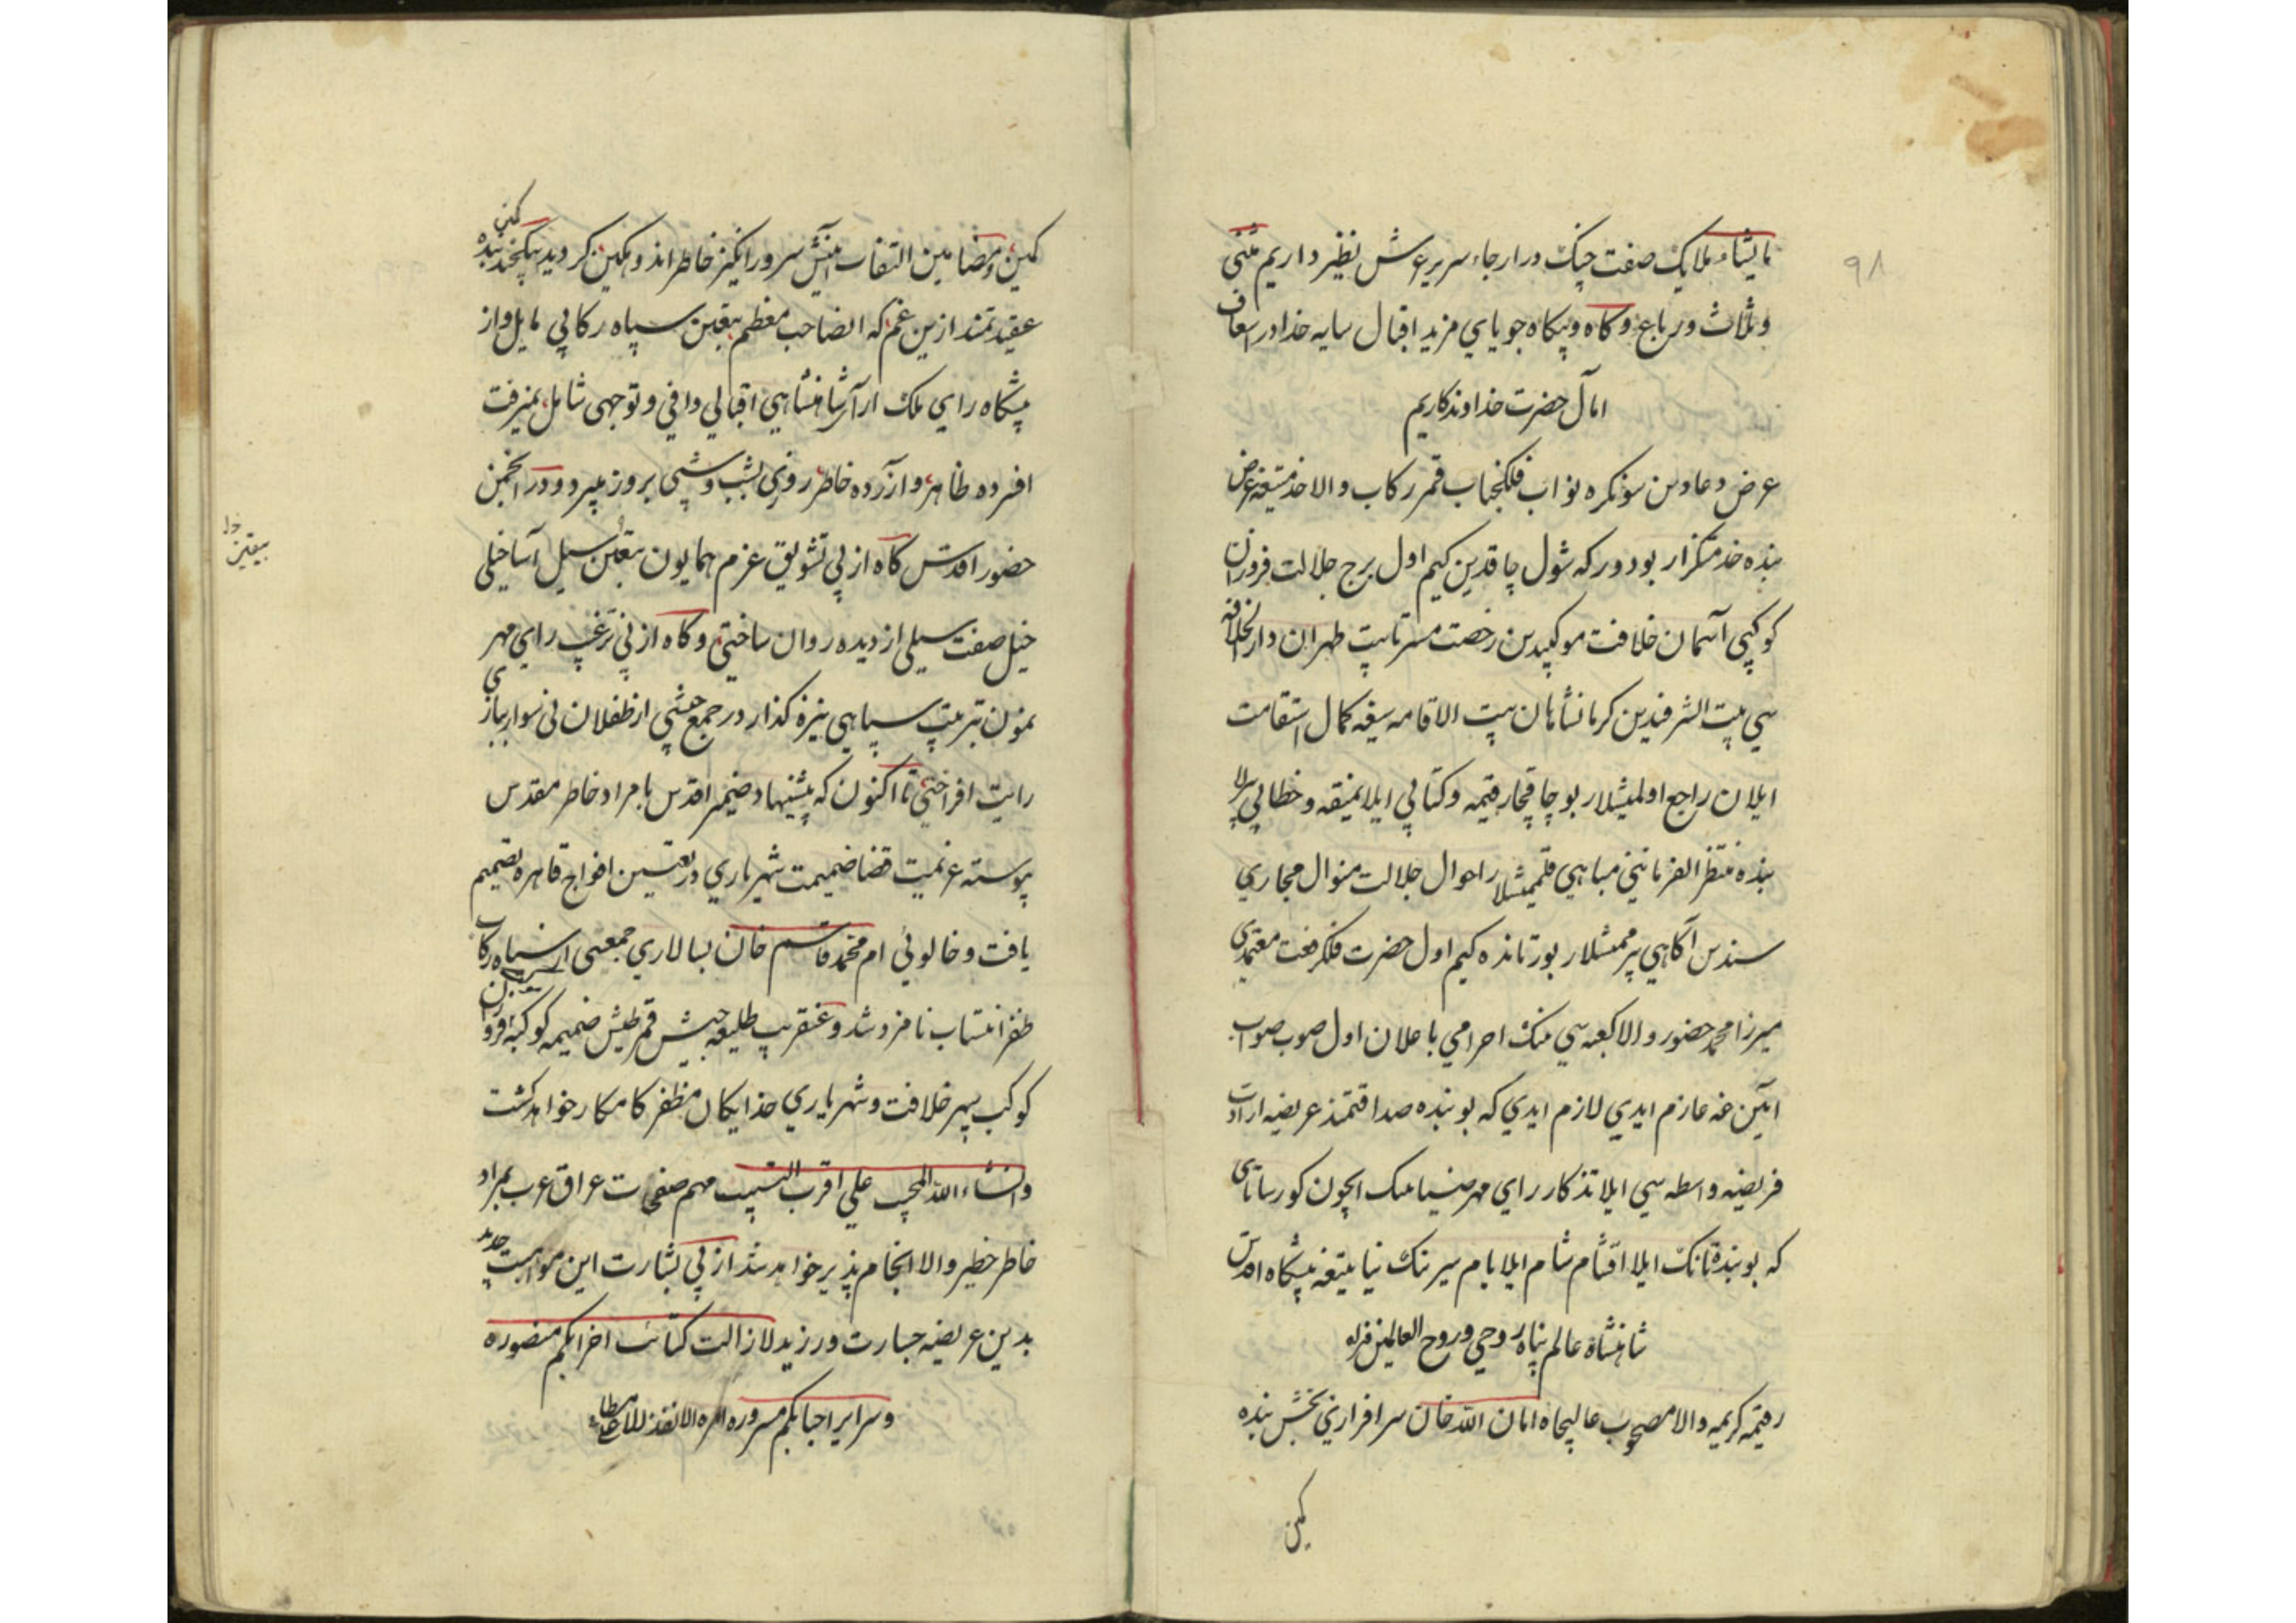 ۹۸
مایشاء ملایک صفت چنک در ارجاء سریر عرش نظیر داریم مثنی
وثلاث ورباع وکاه وبیکاه جویای مزید اقبال سایه خدا در اسعاف
آمال حضرت خداوندکاریم
عرض دعادین سونکره نواب فلکجناب قمر رکاب والا خدمتیغه عرض
بنده خدمتکزار بودور که شول چاقدین کیم اول برج جلالت فروزان
کوکبی آسمان خلافت موکبیدین رخصت طهران دارالخلافه
سی بیت الشرفیدین کرمانشاهان بیت الاقامه سیغه کمال استقامت
ایلان راجع اولمیشلار بو چاقچه رقیمه وکتابی ایلا نمیقه وخطابی برلا
بنده منتظر الفرمانینی مباهی قلمیشلار احوال جلالت منوال مجاری
سندین آکاهی بیرممیشلار بورتانده کیم اول حضرت فلکرفعت معتمدی
میرزا محمد حضور والا کعبه سی ننک احرامی باغلان اول صوب صواب
آیین غه عازم ایدی لازم ایدی که بو بنده صداقتمند عریضه ارادت
فریضه واسطه سی ایلا تذکار رای مهر ضیا ننک ایچون کورساتای
که بو بنده ننک ایلا اقشام شام ایلا بام سیر ننک نیا بتیغه پیشکاه اقدس
شاهنشاه عالم پناه روحی وروح العالمین فداه
رقیمه کریمه والا مصحوب عالیجاه امان الله خان سرافرازی بخش بنده
کمین
کمین ومضامین التفات آیینش سرور انکیز خاطر اندوهکین کردید یکچند بنده
عقیدتمند ازین غم که الصاحب معظم بتعیین سپاه رکابی مایل و از
پیشکاه رای ملک آرا شاهنشاهی اقبالی وافی وتوجهی شامل نمیرفت
افسرده ظاهر وآزرده خاطر روزی بشب وشبی بروز میبرد ودر انجمن
حضور اقدس کاه از پی تشویق عزم همایون بتعیین سیل آسا خیلی
بیقین
خیل صفت سیلی از دیده روان ساختی وکاه از پی ترغیب رای مهر
نمون تربیت سپاهی نیزه کذار در جمع جیشی از طفلان نی سوار بیازی
رایت افراختی تا اکنون که پیشنهاد ضمیر اقدس با مراد خاطر مقدس
پیوسته عزیمت قضا ضمیمت شهریاری در تعیین افواج قاهره تصمیم
یافت و خالوئی ام محمد قاسم خان بسالاری جمعی از سپاه رکاب
ظفر انتساب نامزد شد وعنقریب طلیعه جیش قمر طیش ضمیمه کوکبه فروزان
کوکب سپهر خلافت وشهریاری خدایکان مظفر کامکار خواهد کشت
وانشاء الله المجیب علی اقرب مهم صفحات عراق عرب بمراد
خاطر خطیر والا انجام پذیر خواهد شد از پی بشارت این موهبت جدید
بدین عریضه جسارت ورزید لازالت کتائب احزابکم منصوره
وسرایر احبابکم مسروره امره الانفذ الاعلی مطاع